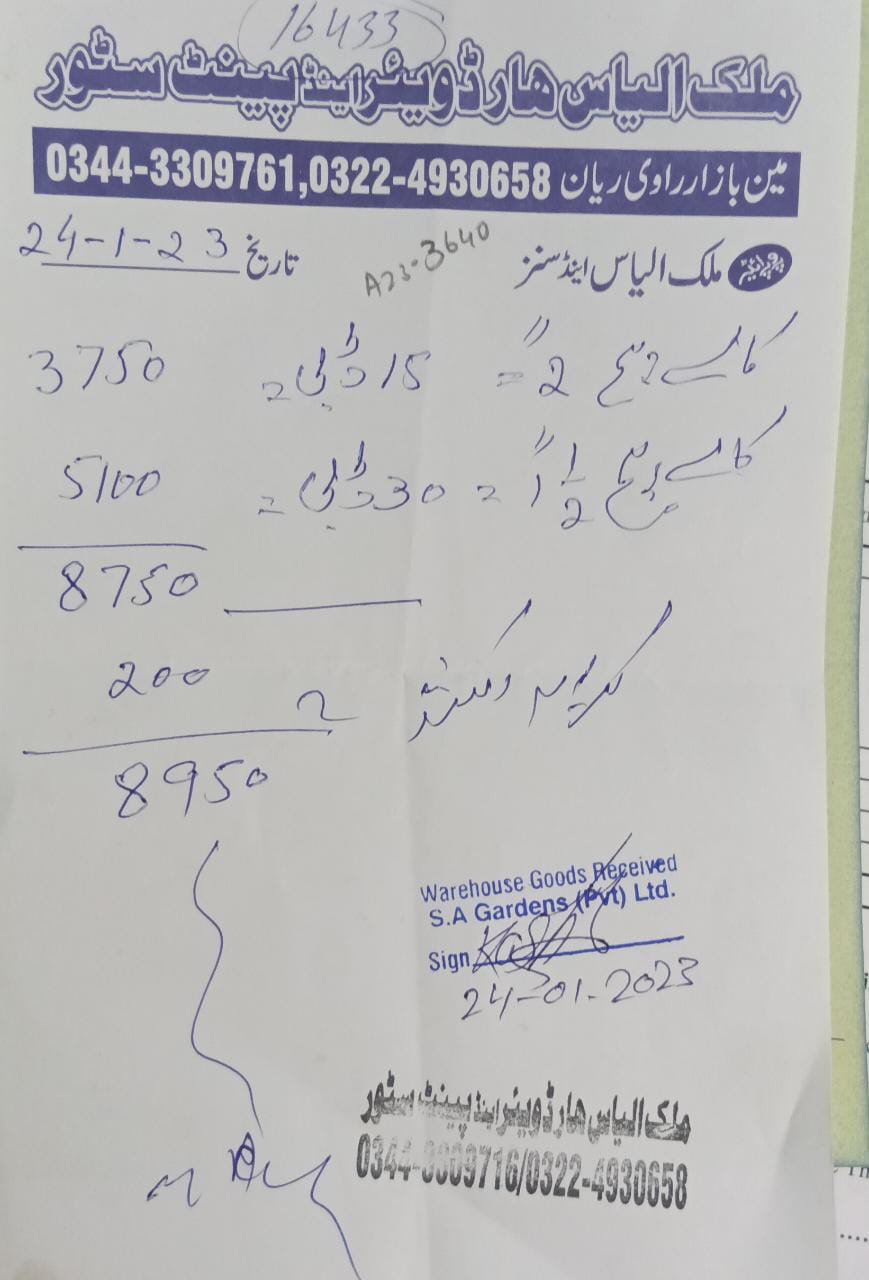 16433
ملک الیاس ھارڈویئر اینڈ پینٹ سٹور
مین بازار راوی ریان 0344-3309761,0322-4930658
پروپرائیٹر ملک الیاس اینڈ سنز
تاریخ 24-1-23
A23-3640
کالے پیچ 2" = 15 ڈبی = 3750
کالے پیچ 1 1/2" = 30 ڈبی = 5100
8750
کرایہ رکشہ 200
8950
Warehouse Goods Received
S.A Gardens (Pvt) Ltd.
Sign
24-01-2023
ملک الیاس ھارڈویئر اینڈ پینٹ سٹور
0344-3309716/0322-4930658